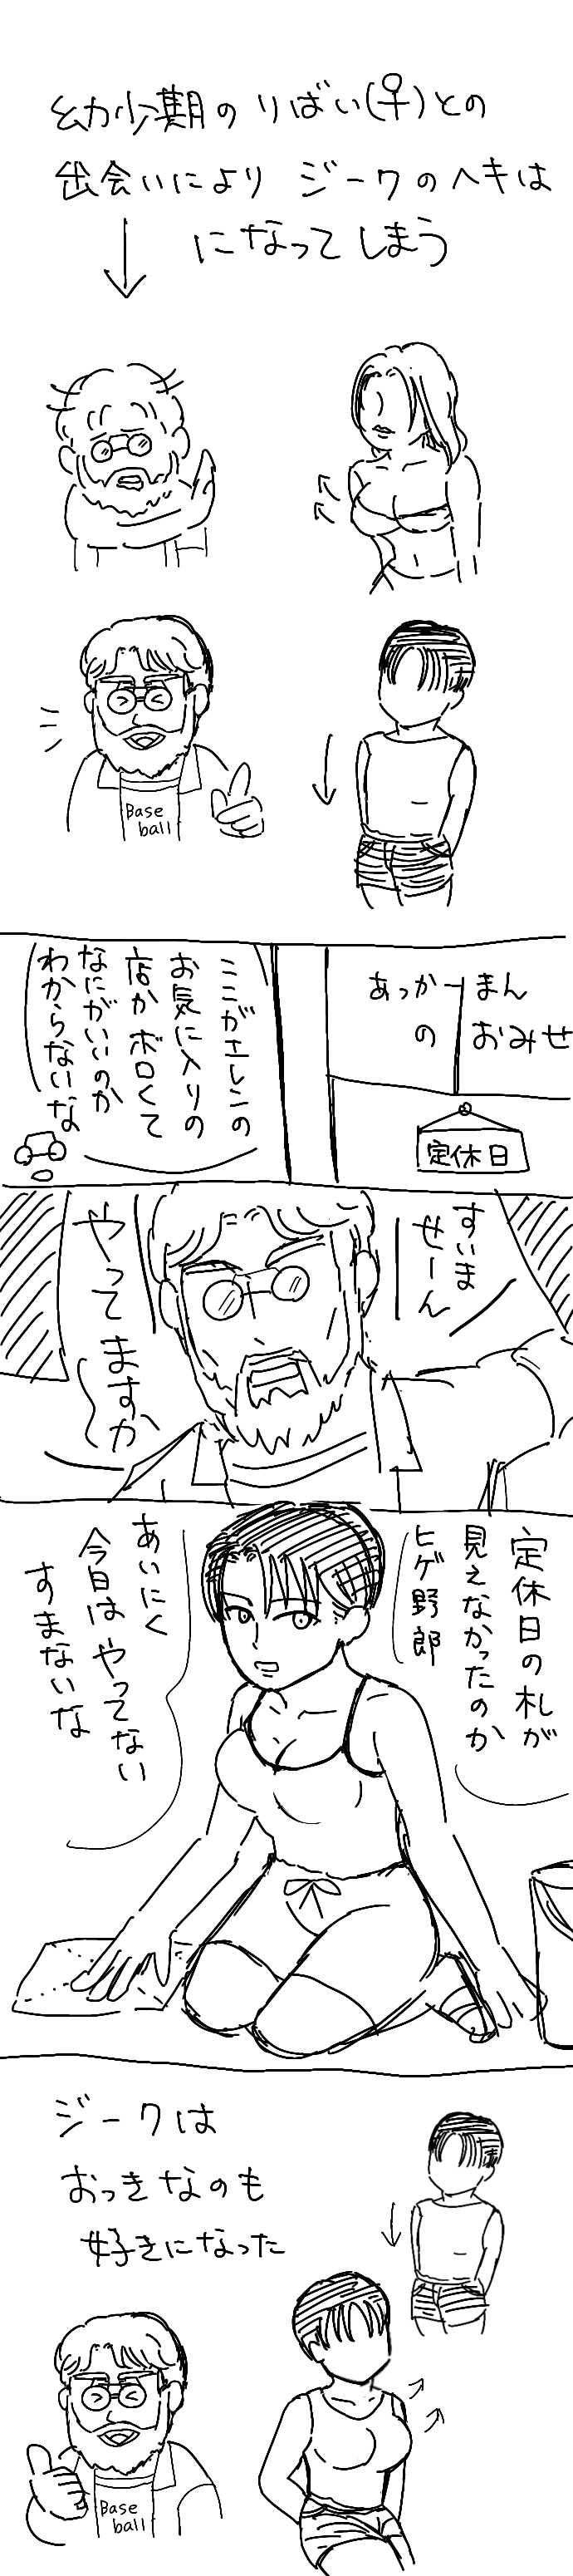 幼少期のりばい(♀)との
出会いにより ジークのヘキは
になってしまう
Base
ball
あっかーまん
の おみせ
定休日
ここがエレンの
お気に入りの
店か ボロくて
なにがいいのか
わからないな
すいま
せーん
やってますか
定休日の札が
見えなかったのか
ヒゲ野郎
あいにく
今日はやってない
すまないな
ジークは
おっきなのも
好きになった
Base
ball